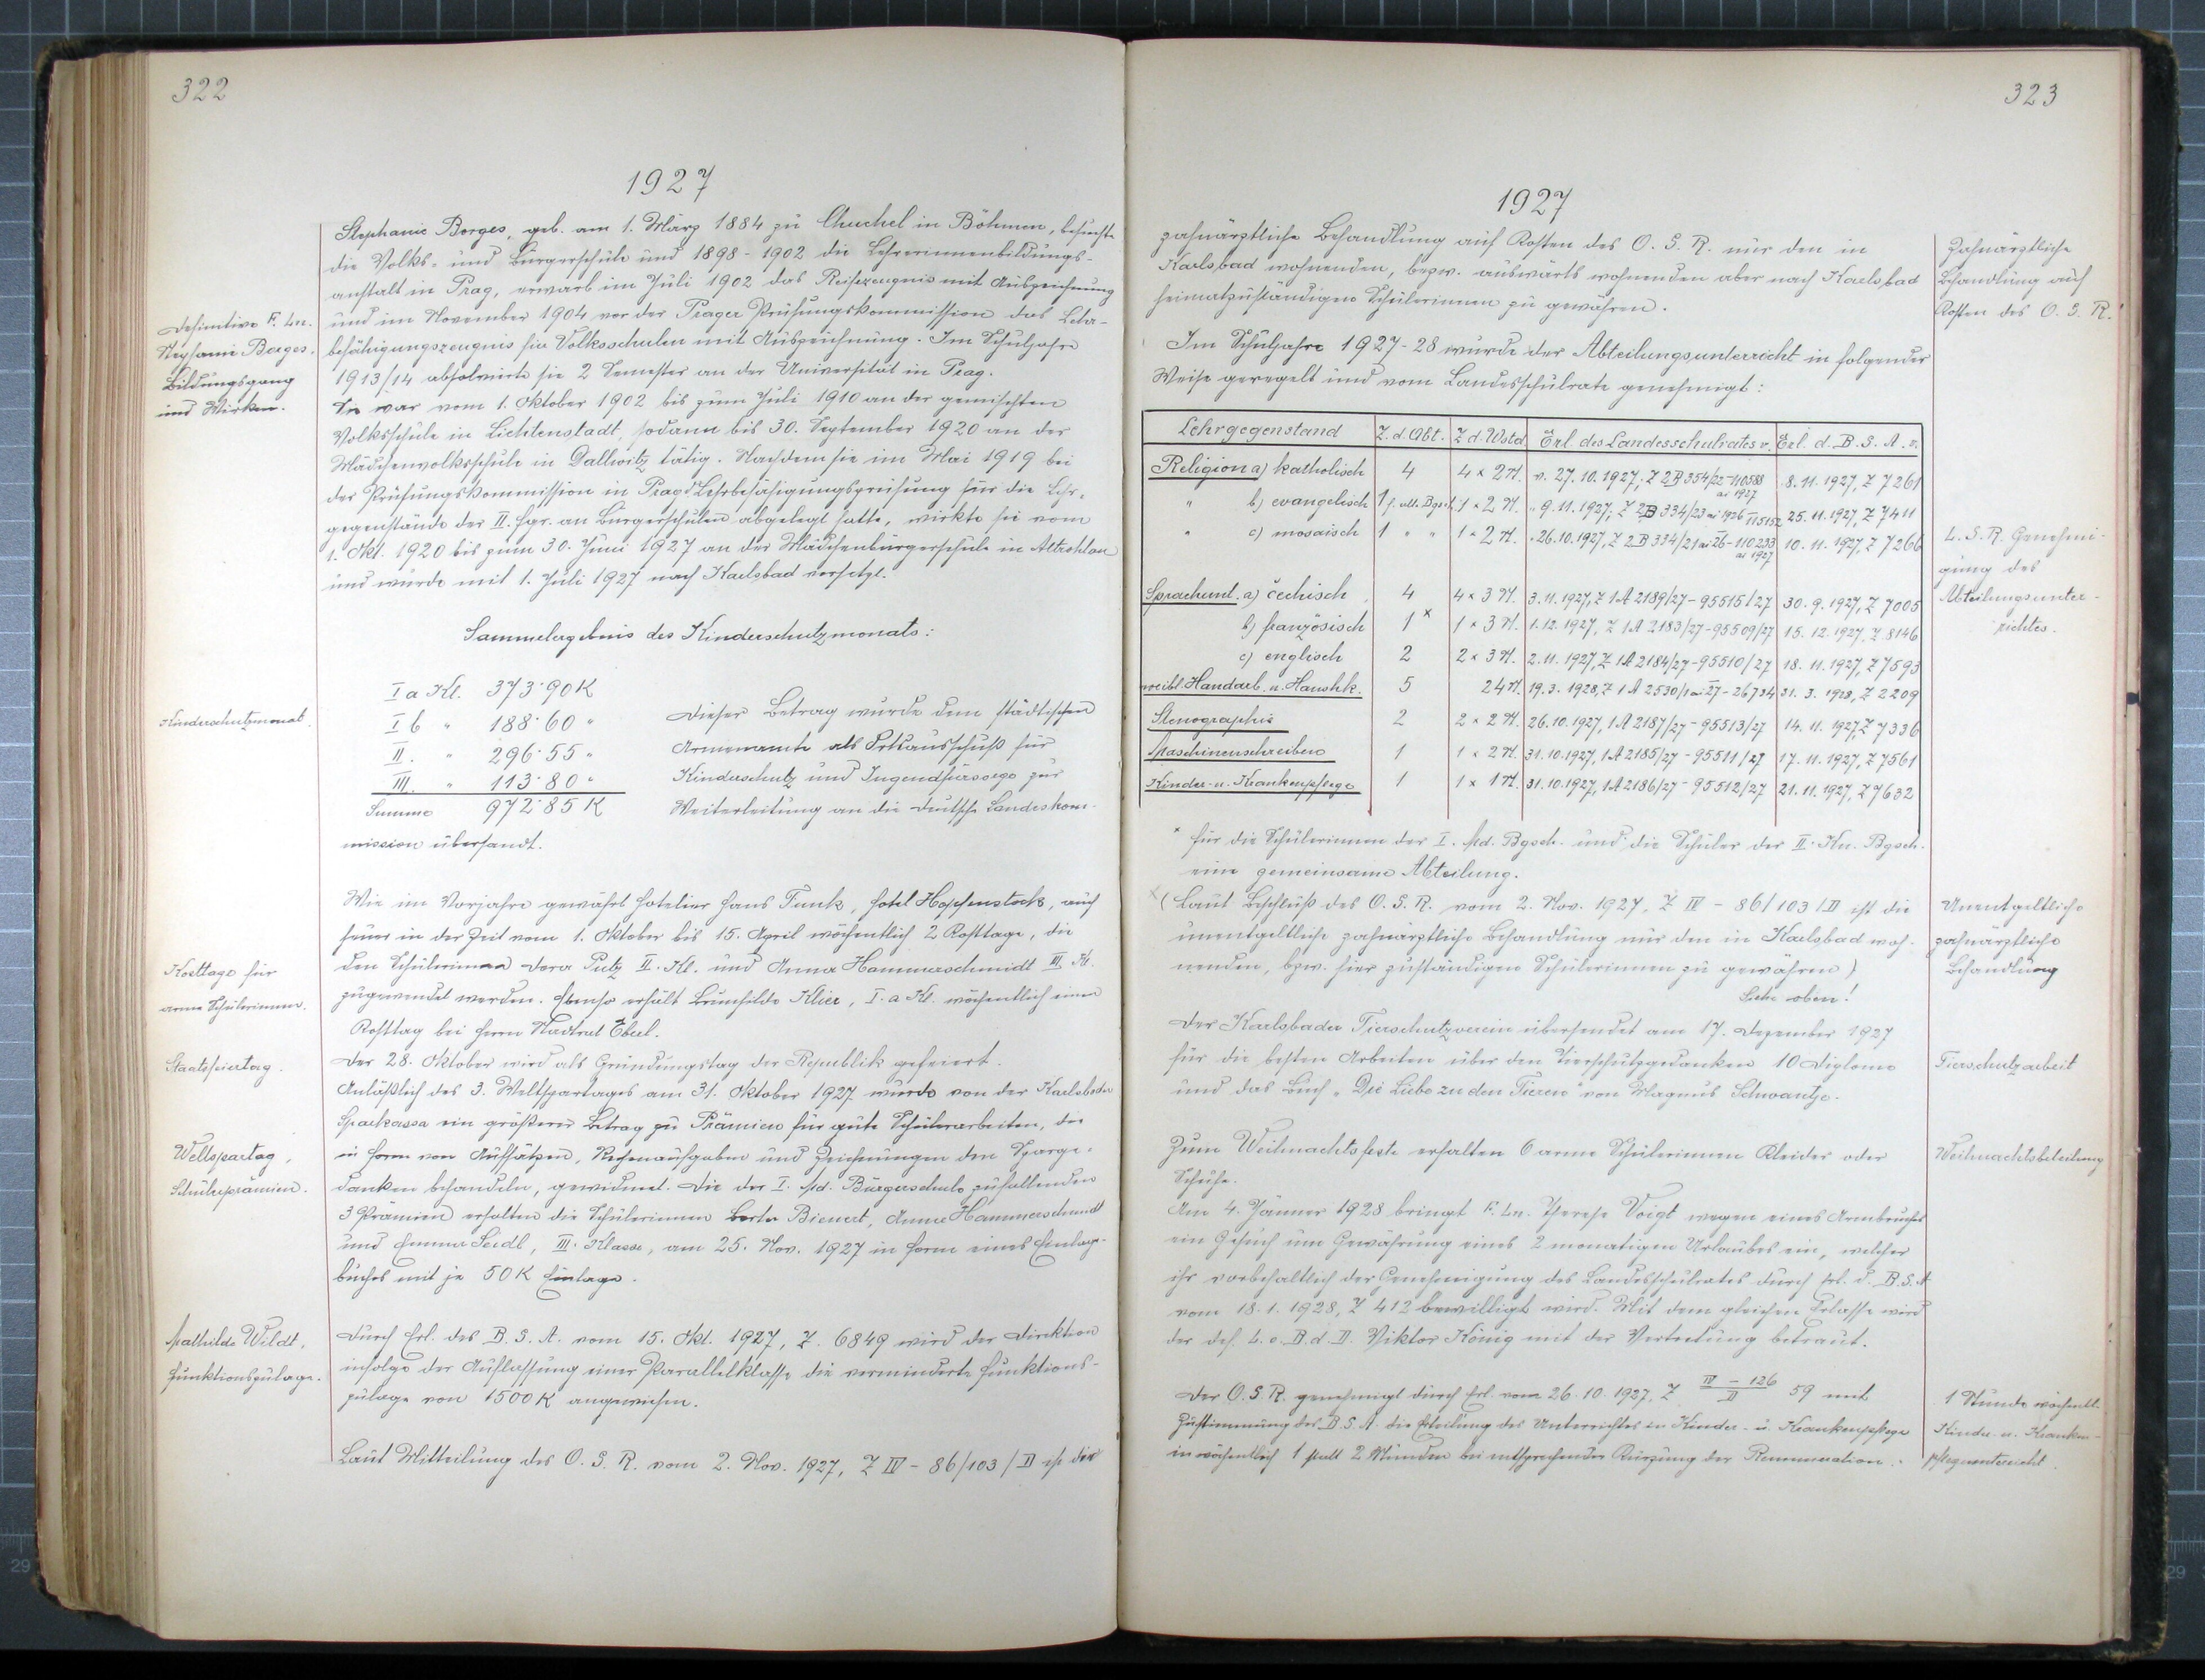 322
1927
Stephanie Borges, geb. am 1. März 1884 zu Chuchel in Böhmen, besuchte
die Volks- und Bürgerschule und 1898-1902 die Lehrerinnenbildungs-
anstalt in Prag, erwarb im Juli 1902 das Reifezeugnis mit Auszeichnung
und im November 1904 vor der Prager Prüfungskommission das Lehr-
befähigungszeugnis für Volksschulen mit Auszeichnung. Im Schuljahre
1913/14 absolvierte sie 2 Semester an der Universität in Prag.
Sie war vom 1. Oktober 1902 bis zum Juli 1910 an der gemischten
Volksschule in Lichtenstadt, sodann bis 30. September 1920 an der
Mädchenvolksschule in Dallwitz tätig. Nachdem sie im Mai 1919 bei
der Prüfungskommission in Prag d. Lehrbefähigungsprüfung für die Lehr-
gegenstände der II. Fgr. an Bürgerschulen abgelegt hatte, wirkte sie vom
1. Okt. 1920 bis zum 30. Juni 1927 an der Mädchenbürgerschule in Altrohlau
und wurde mit 1. Juli 1927 nach Karlsbad versetzt.
Definitive F. Ln.
Stephanie Borges.
Bildungsgang
und Wirken.
Sammelergebnis des Kinderschutzmonats:
Kinderschutzmonat.
I a Kl. 373·90 K
I b " 188·60 "
II. " 296·55 "
III. " 113·80 "
Summe 972·85 K
Dieser Betrag wurde dem städtischen
Armenamte als Ortsausschuß für
Kinderschutz und Jugendfürsorge zur
Weiterleitung an die deutsche Landeskom-
mission übersandt.
Wie im Vorjahre gewährt Hotelier Hans Funk, Hotel Hopfenstock, auch
heuer in der Zeit vom 1. Oktober bis 15. April wöchentlich 2 Kosttage, die
den Schülerinnen Dora Putz II. Kl. und Anna Hammerschmidt III. Kl.
zugewendet werden. Ebenso erhält Brunhilde Klier, I. a Kl. wöchentlich einen
Kosttag bei Herrn Stadtrat Eberl.
Kosttage für
arme Schülerinnen.
Staatsfeiertag.
Der 28. Oktober wird als Gründungstag der Republik gefeiert.
Anläßlich des 3. Weltspartages am 31. Oktober 1927 wurde von der Karlsbader
Sparkassa ein größerer Betrag zu Prämien für gute Schülerarbeiten, die
in Form von Aufsätzen, Rechenaufgaben und Zeichnungen den Sparge-
danken behandeln, gewidmet. Die der I. Md. Bürgerschule zufallenden
3 Prämien erhalten die Schülerinnen Berta Bienert, Anna Hammerschmidt
und Emma Seidl, III. Klasse, am 25. Nov. 1927 in Form eines Einlage-
buches mit je 50 K Einlage.
Weltspartag,
Schülerprämien.
Mathilde Wildt,
Funktionszulage.
Durch Erl. des B. S. A. vom 15. Okt. 1927, Z. 6849 wird der Direktion
infolge der Auflassung einer Parallelklasse die verminderte Funktions-
zulage von 1500 K angewiesen.
Laut Mitteilung des O. S. R. vom 2. Nov. 1927, Z IV - 86/103/II ist die
323
1927
zahnärztliche Behandlung auf Kosten des O. S. R. nur den in
Karlsbad wohnenden, bezw. auswärts wohnenden aber nach Karlsbad
heimatzuständigen Schülerinnen zu gewähren.
Zahnärztliche
Behandlung auf
Kosten des O. S. R.
Im Schuljahre 1927-28 wurde der Abteilungsunterricht in folgender
Weise geregelt und vom Landesschulrate genehmigt:
Lehrgegenstand Z. d. Abt. Z d. Wstd. Erl. des Landesschulrates v. Erl. d. B. S. A. v.
Religion a) katholisch 4 4 × 2 St. v. 27. 10. 1927, Z 2B 354/22-110588 ai 1927 8. 11. 1927, Z 7261
" b) evangelisch 1 f. alle Bgsch. 1 × 2 St. " 9. 11. 1927, Z 2B 334/23 ai 1926 115152 25. 11. 1927, Z 7411
" c) mosaisch 1 " " 1 × 2 St. " 26. 10. 1927, Z 2B 334/21 ai 26-110233 ai 1927 10. 11. 1927, Z 7266
Sprachunt. a) čechisch 4 4 × 3 St. 3. 11. 1927, Z 1A 2189/27-95515/27 30. 9. 1927, Z 7005
b) französisch 1 × 1 × 3 St. 1. 12. 1927, Z 1A 2183/27-95509/27 15. 12. 1927, Z. 8146
c) englisch 2 2 × 3 St. 2. 11. 1927, Z 1A 2184/27-95510/27 18. 11. 1927, Z 7593
weibl. Handarb. u. Haushk. 5 24 St. 19. 3. 1928, Z 1A 2530/1 ai 27-26734 31. 3. 1928, Z 2209
Stenographie 2 2 × 2 St. 26. 10. 1927, 1A 2187/27-95513/27 14. 11. 1927, Z 7336
Maschinenschreiben 1 1 × 2 St. 31. 10. 1927, 1A 2185/27-95511/27 17. 11. 1927, Z 7561
Kinder- u. Krankenpflege 1 1 × 1 St. 31. 10. 1927, 1A 2186/27-95512/27 21. 11. 1927, Z 7632
L. S. R. Genehmi-
gung des
Abteilungsunter-
richtes.
× für die Schülerinnen der I. Md. Bgsch. und die Schüler der II. Kn. Bgsch.
eine gemeinsame Abteilung.
× (Laut Beschluß des O. S. R. vom 2. Nov. 1927, Z IV - 86/103/II ist die
unentgeltliche zahnärztliche Behandlung nur den in Karlsbad woh-
nenden, bzw. hier zuständigen Schülerinnen zu gewähren)
Siehe oben!
Unentgeltliche
zahnärztliche
Behandlung
Der Karlsbader Tierschutzverein übersendet am 17. Dezember 1927
für die besten Arbeiten über den Tierschutzgedanken 10 Diplome
und das Buch „Die Liebe zu den Tieren" von Magnus Schwantje.
Tierschutzarbeit
Zum Weihnachtsfeste erhalten 6 arme Schülerinnen Kleider oder
Schuhe.
Weihnachtsbeteilung
Am 4. Jänner 1928 bringt F. Ln. Therese Voigt wegen eines Armbruches
ein Gesuch um Gewährung eines 2 monatigen Urlaubes ein, welcher
ihr vorbehaltlich der Genehmigung des Landesschulrates durch Erl. d. B.S.A
vom 18. 1. 1928, Z 412 bewilligt wird. Mit dem gleichen Erlasse wird
der def. L. o. B. d. D. Viktor König mit der Vertretung betraut.
Der O. S. R. genehmigt durch Erl. vom 26. 10. 1927, Z IV - 126/II 59 mit
Zustimmung des B. S. A. die Erteilung des Unterrichtes in Kinder- u. Krankenpflege
in wöchentlich 1 statt 2 Stunden bei entsprechender Kürzung der Remuneration.
1 Stunde wöchentl.
Kinder- u. Kranken-
pflegeunterricht.
29
29